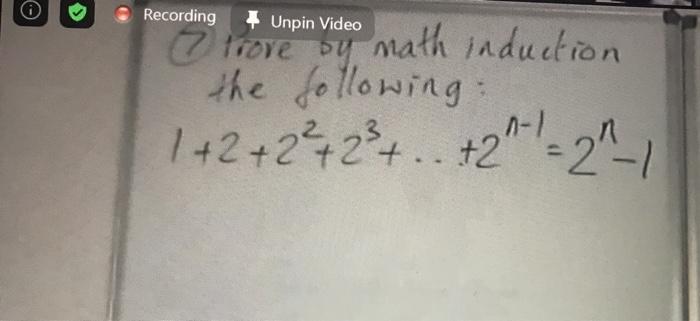 Recording Unpin Video
⑦ Prove by math induction
the following:
1+2+2²+2³+...+2ⁿ⁻¹=2ⁿ-1